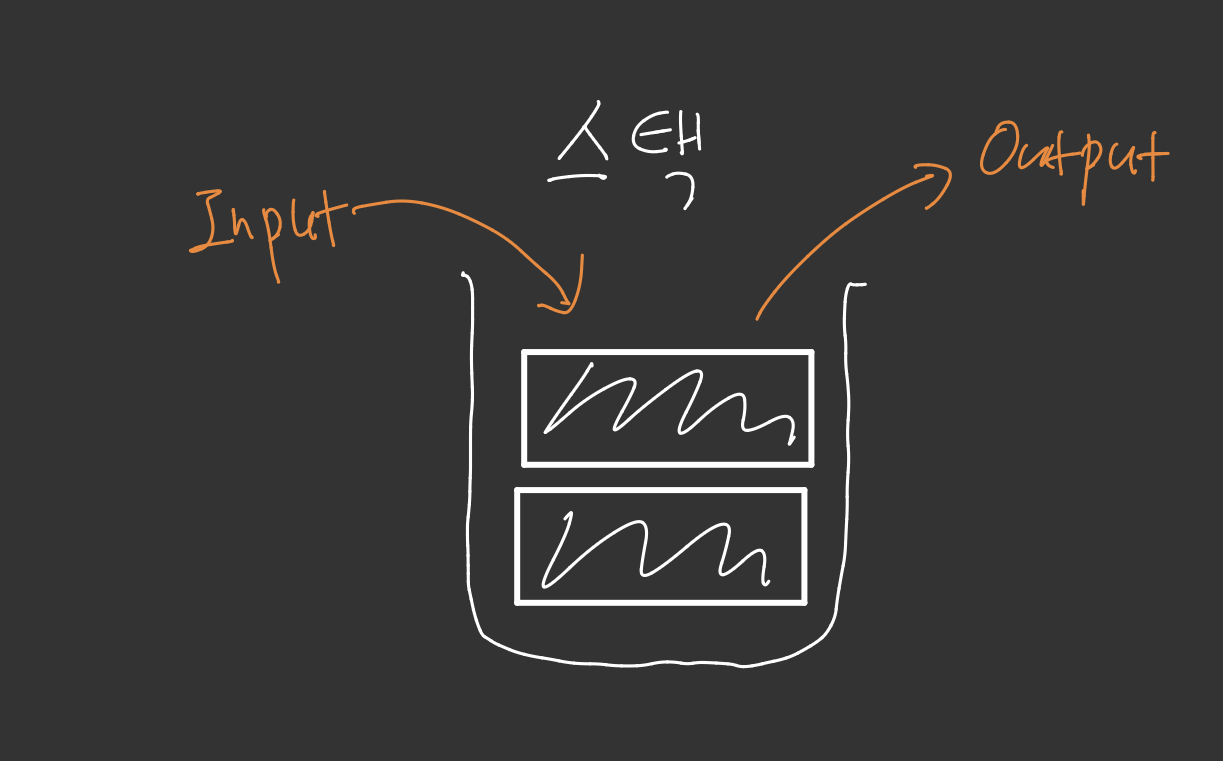 스택
Input
Output